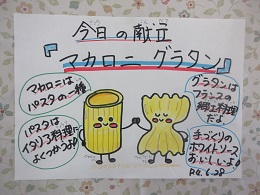 今日の献立
『マカロニ グラタン』
マカロニは
パスタの一種
パスタは
イタリア料理に
よくつかうよ!
グラタンは
フランスの
郷土料理
だよ
手づくりの
ホワイトソース
おいしいよ!
R4.6.28